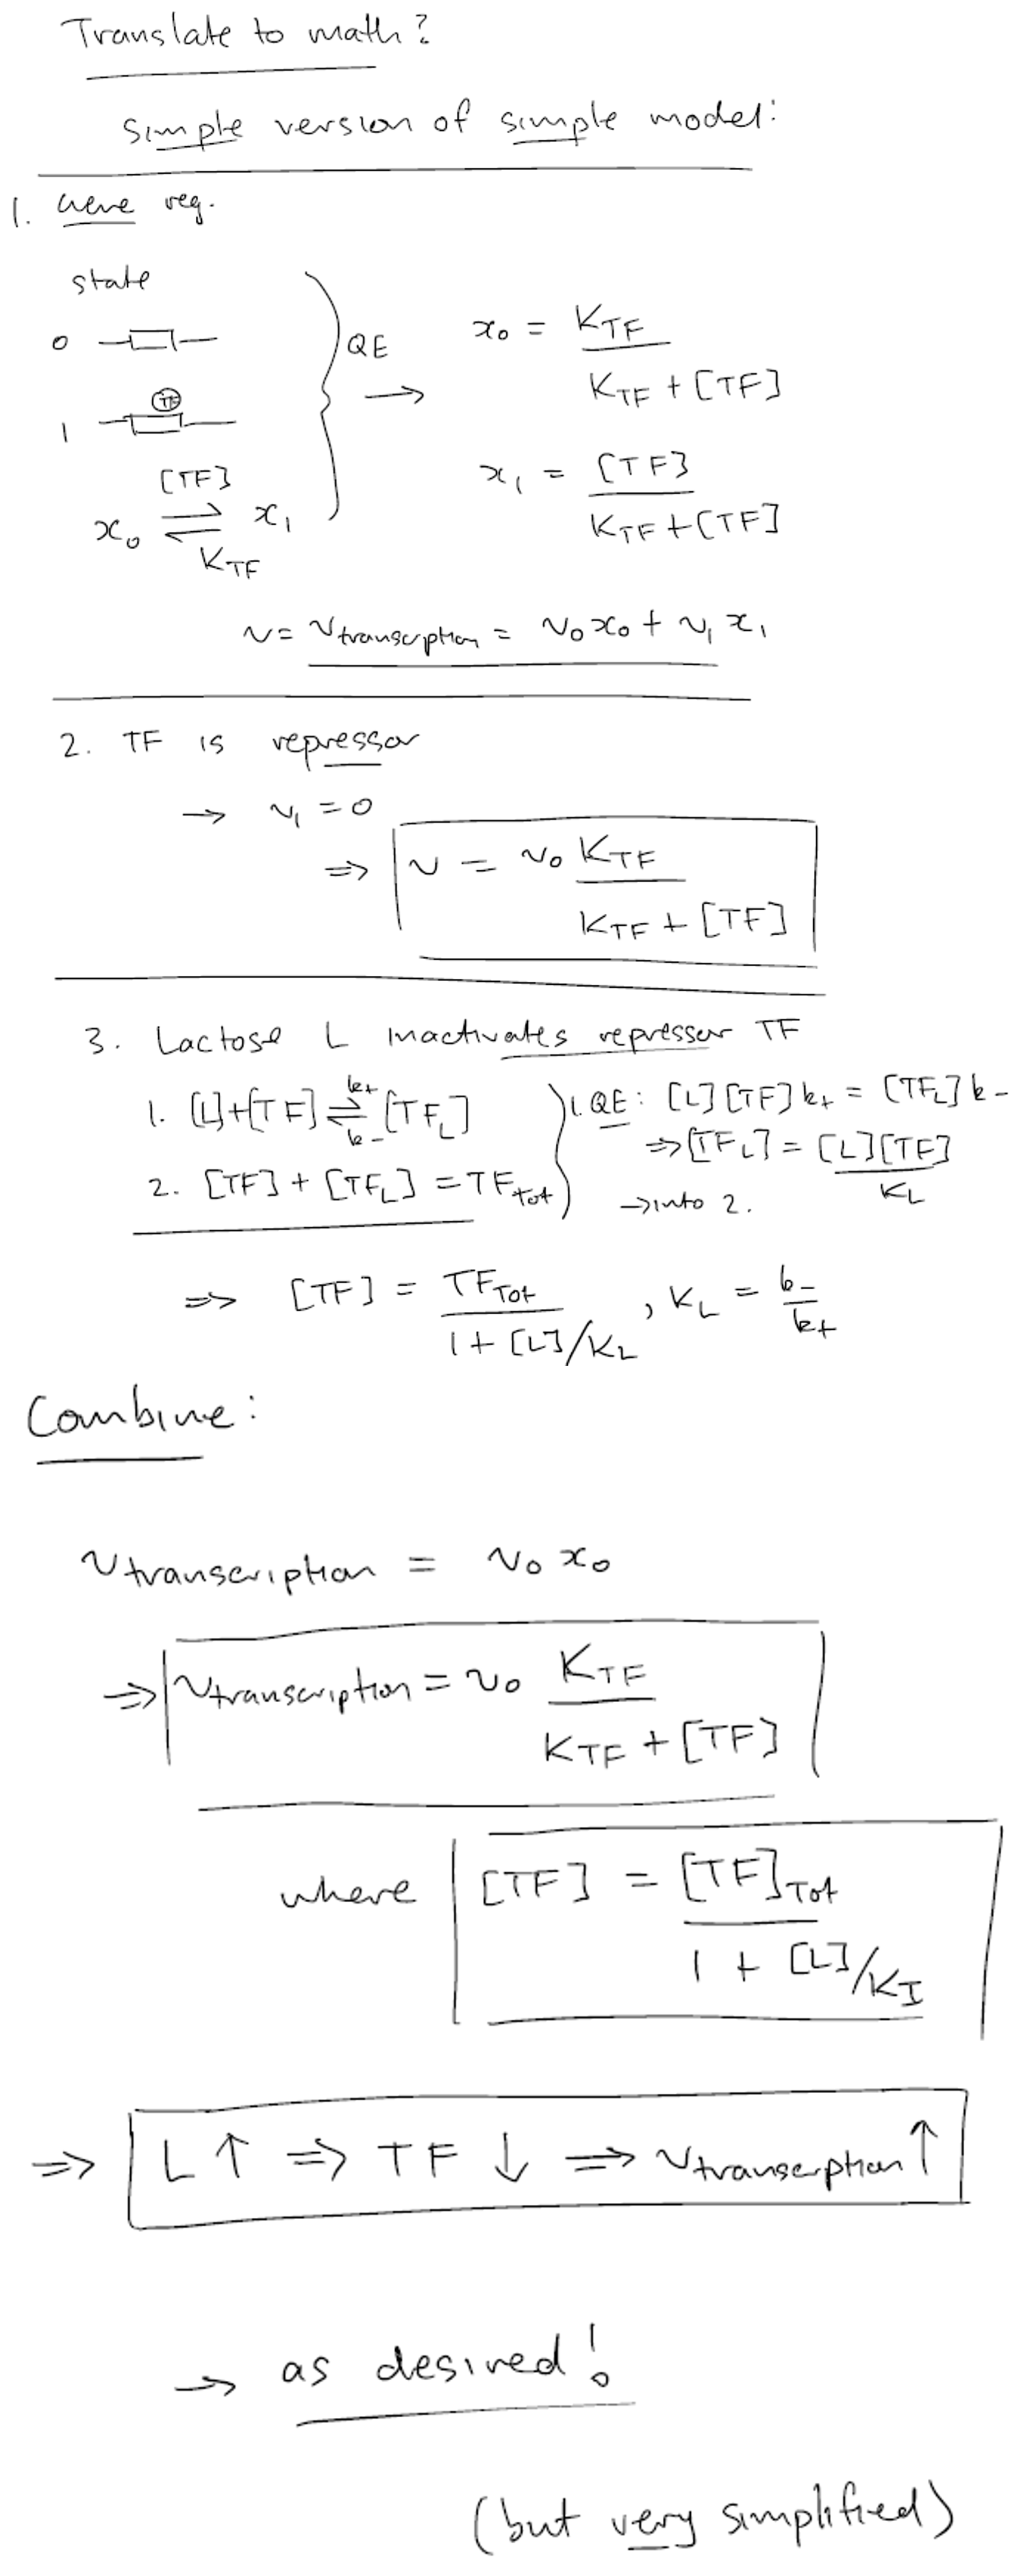 Translate to math?
Simple version of simple model:
1. Gene reg.
state
0
1 TF
[TF]
x₀ ⇌ x₁
K_TF
QE →
x₀ = K_TF / (K_TF + [TF])
x₁ = [TF] / (K_TF + [TF])
v = v_transcription = v₀x₀ + v₁x₁
2. TF is repressor
→ v₁ = 0
⇒ v = v₀ K_TF / (K_TF + [TF])
3. Lactose L inactivates repressor TF
1. [L]+[TF] ⇌ [TF_L] k+ k-
2. [TF] + [TF_L] = TF_tot
1. QE: [L][TF]k+ = [TF_L]k-
⇒ [TF_L] = [L][TF] / K_L
→ into 2.
⇒ [TF] = TF_Tot / (1 + [L]/K_L) , K_L = k- / k+
Combine:
v_transcription = v₀ x₀
⇒ v_transcription = v₀ K_TF / (K_TF + [TF])
where [TF] = [TF]_Tot / (1 + [L]/K_I)
⇒ L ↑ ⇒ TF ↓ ⇒ v_transcription ↑
→ as desired!
(but very simplified)